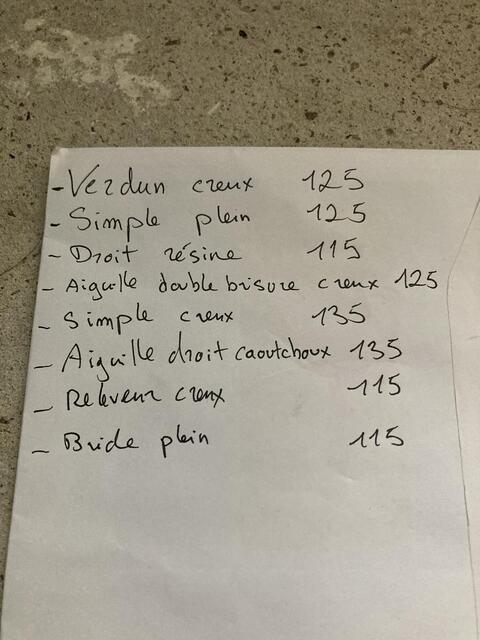 - Verdun creux 125
- Simple plein 125
- Droit résine 115
- Aiguille double brisure creux 125
- Simple creux 135
- Aiguille droit caoutchoux 135
- Releveur creux 115
- Bride plein 115